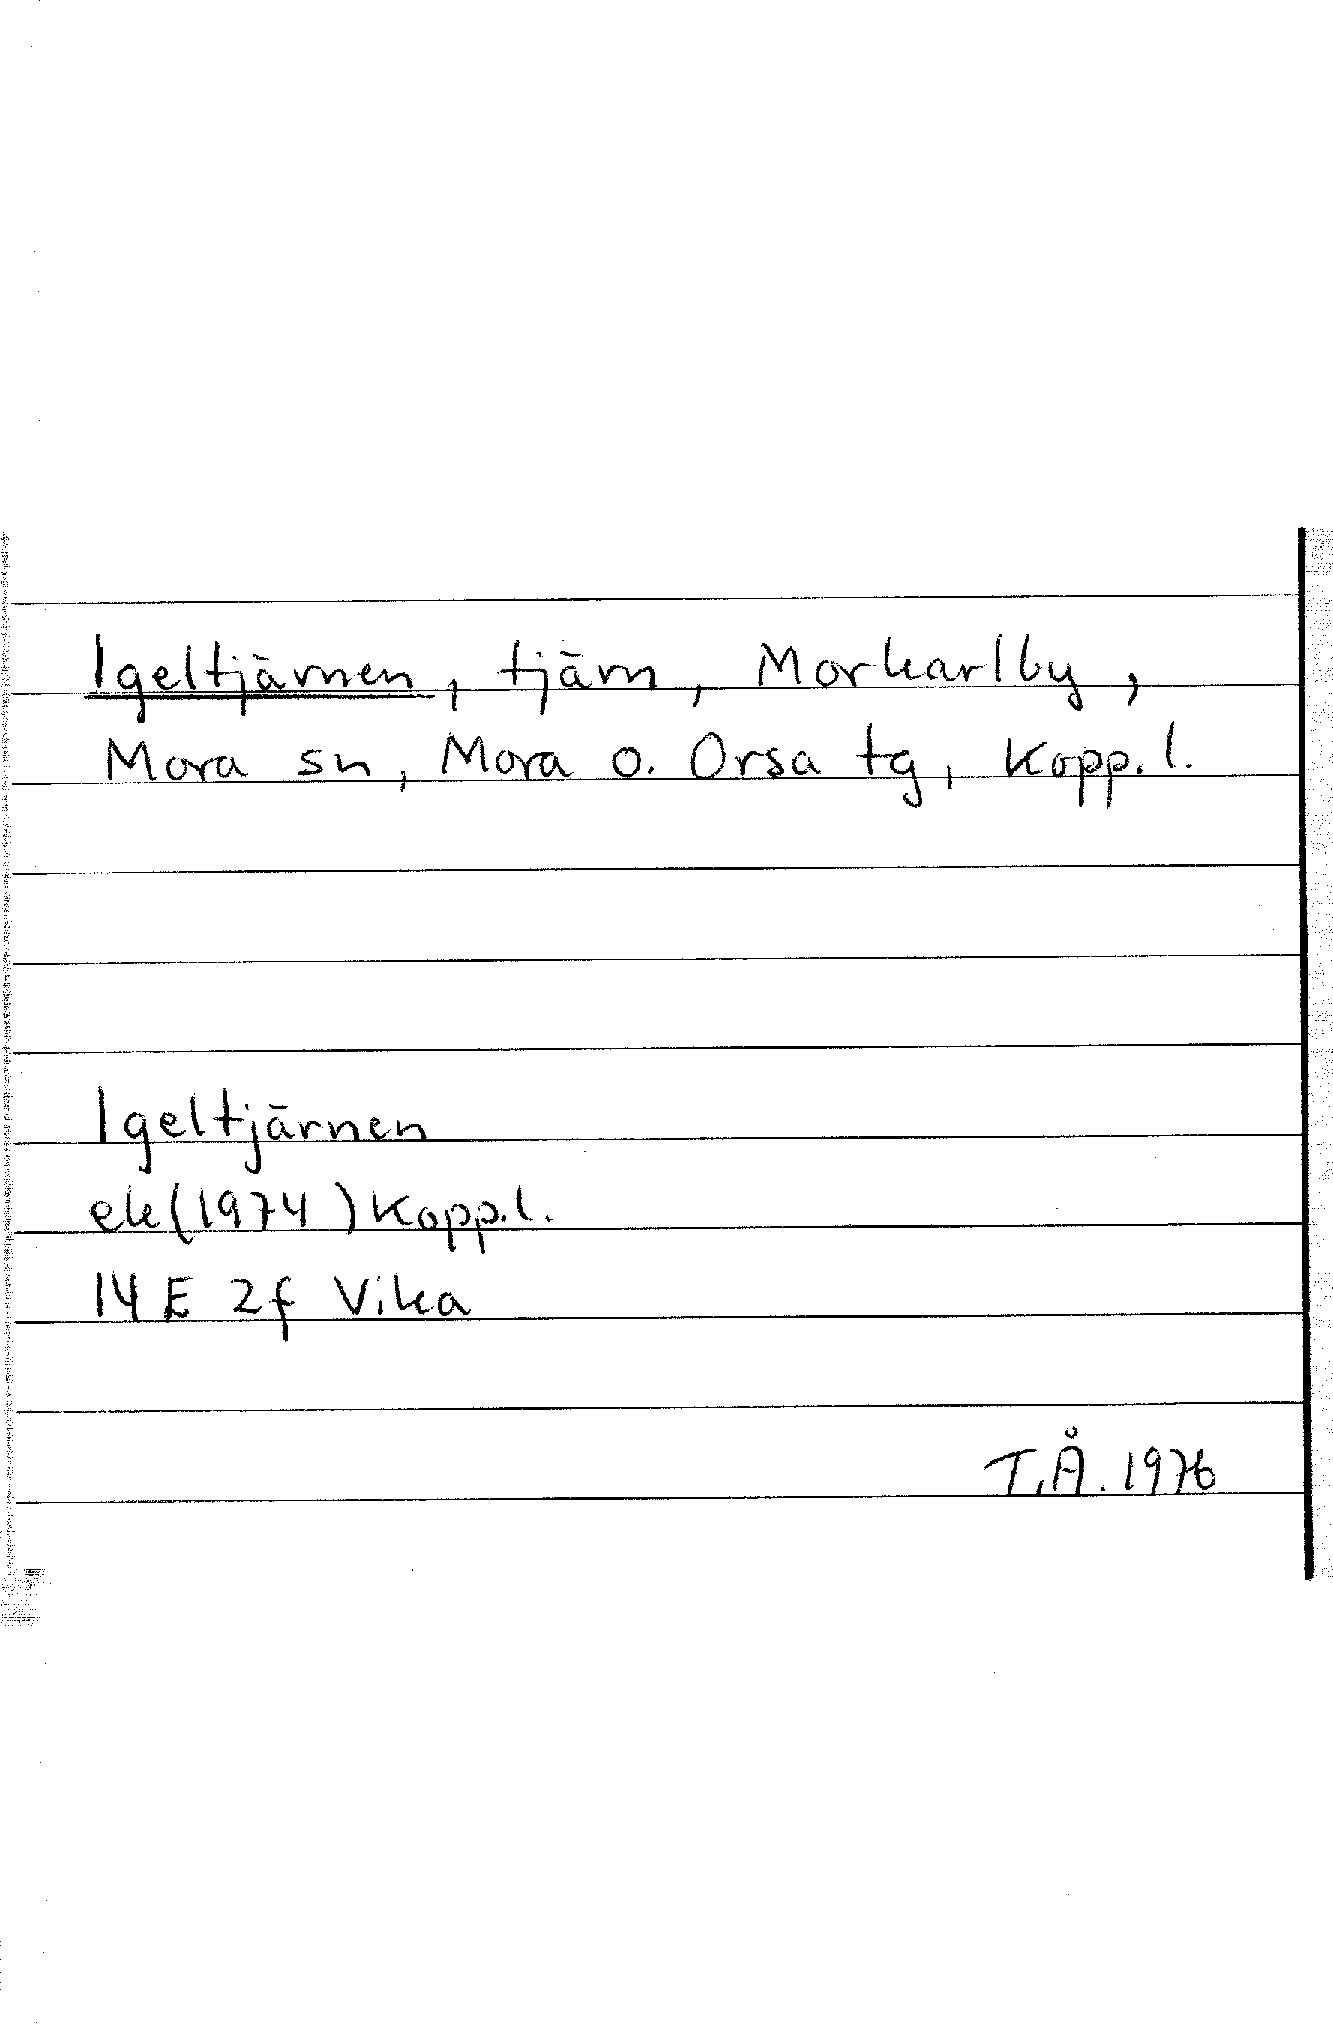 Igeltjärnen, tjärn, Morkarlby,
Mora sn, Mora o. Orsa tg, Kopp. l.
Igeltjärnen
ek(1974) Kopp.l.
14 E 2f Vika
T.Å. 1976